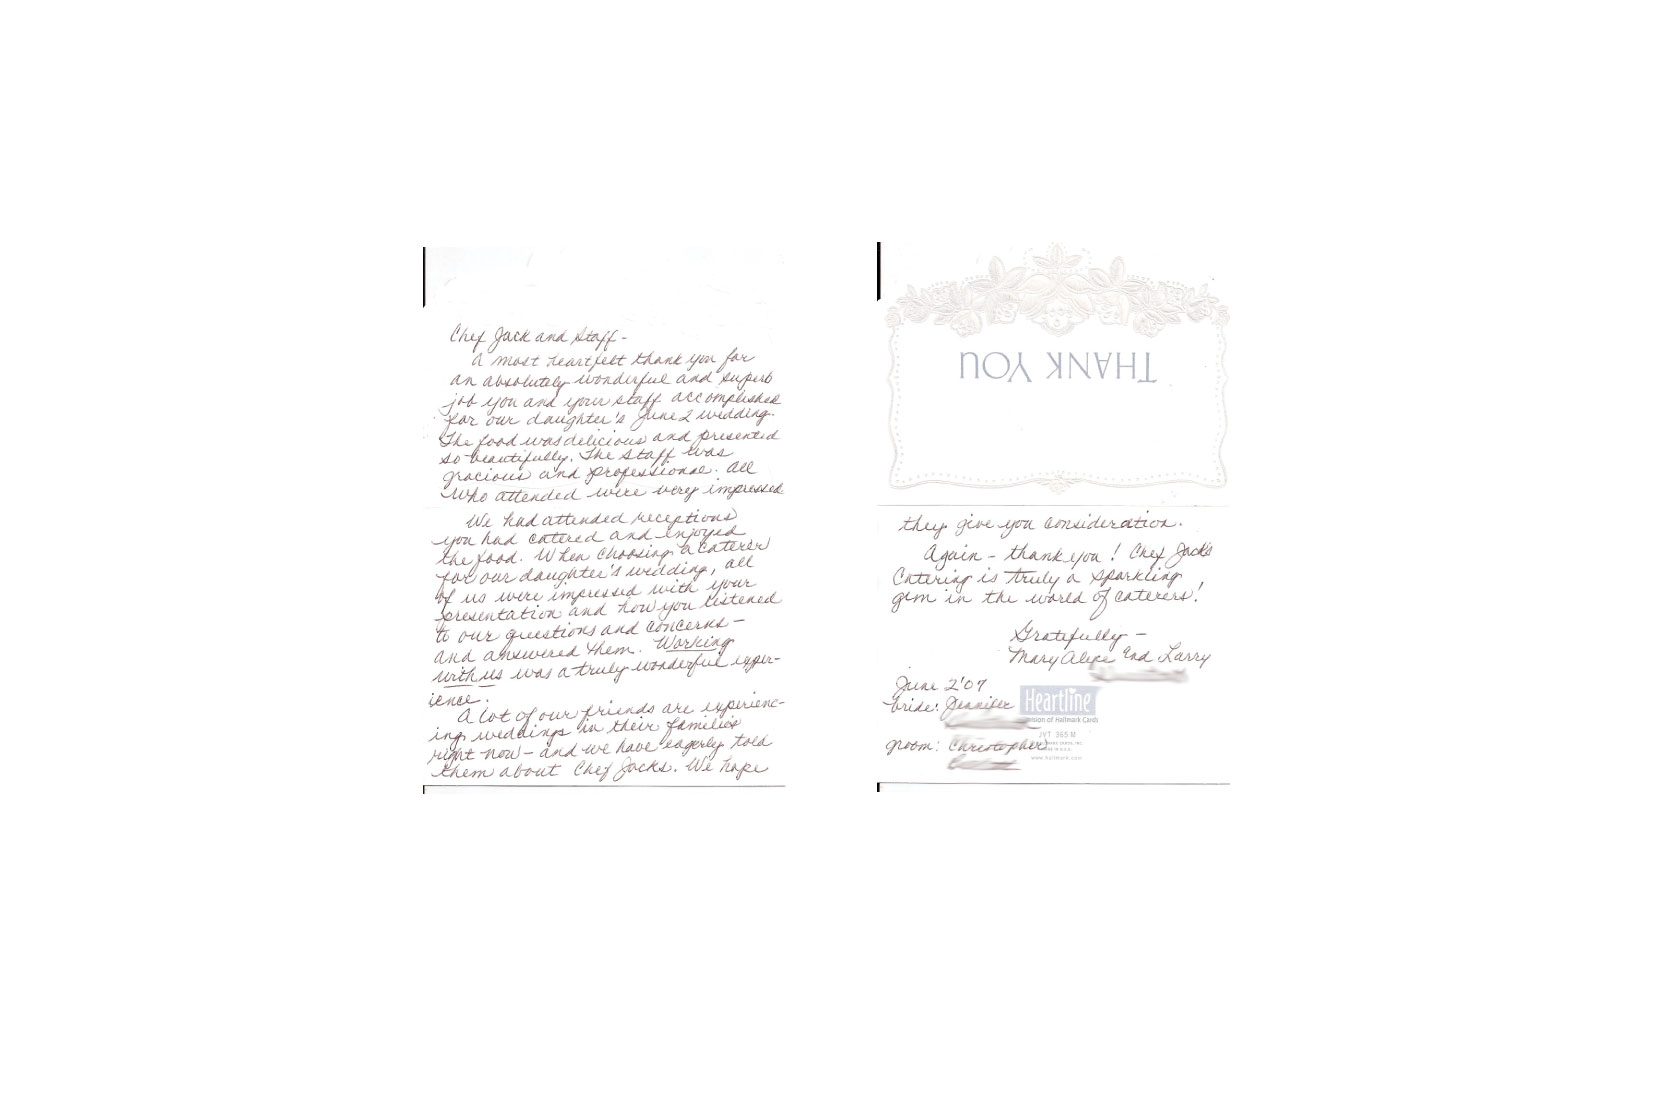 Chef Jack and Staff -
A most heartfelt thank you for
an absolutely wonderful and superb
job you and your staff accomplished
for our daughter's June 2 wedding.
The food was delicious and presented
so beautifully. The staff was
gracious and professional. All
who attended were very impressed
We had attended receptions
you had catered and enjoyed
the food. When choosing a caterer
for our daughter's wedding, all
of us were impressed with your
presentation and how you listened
to our questions and concerns -
and answered them. Working
with us was a truly wonderful exper-
ience.
A lot of our friends are experienc-
ing weddings in their families
right now - and we have eagerly told
them about Chef Jacks. We hope
THANK YOU
they give you consideration.
Again - thank you! Chef Jack's
Catering is truly a sparkling
gem in the world of caterers!
Gratefully -
Mary Alice and Larry
June 2 '07
bride: Jennifer
groom: Christopher
Heartline
ision of Hallmark Cards
JVT 365 M
MARK CARDS, INC.
MADE IN U.S.A.
www.hallmark.com